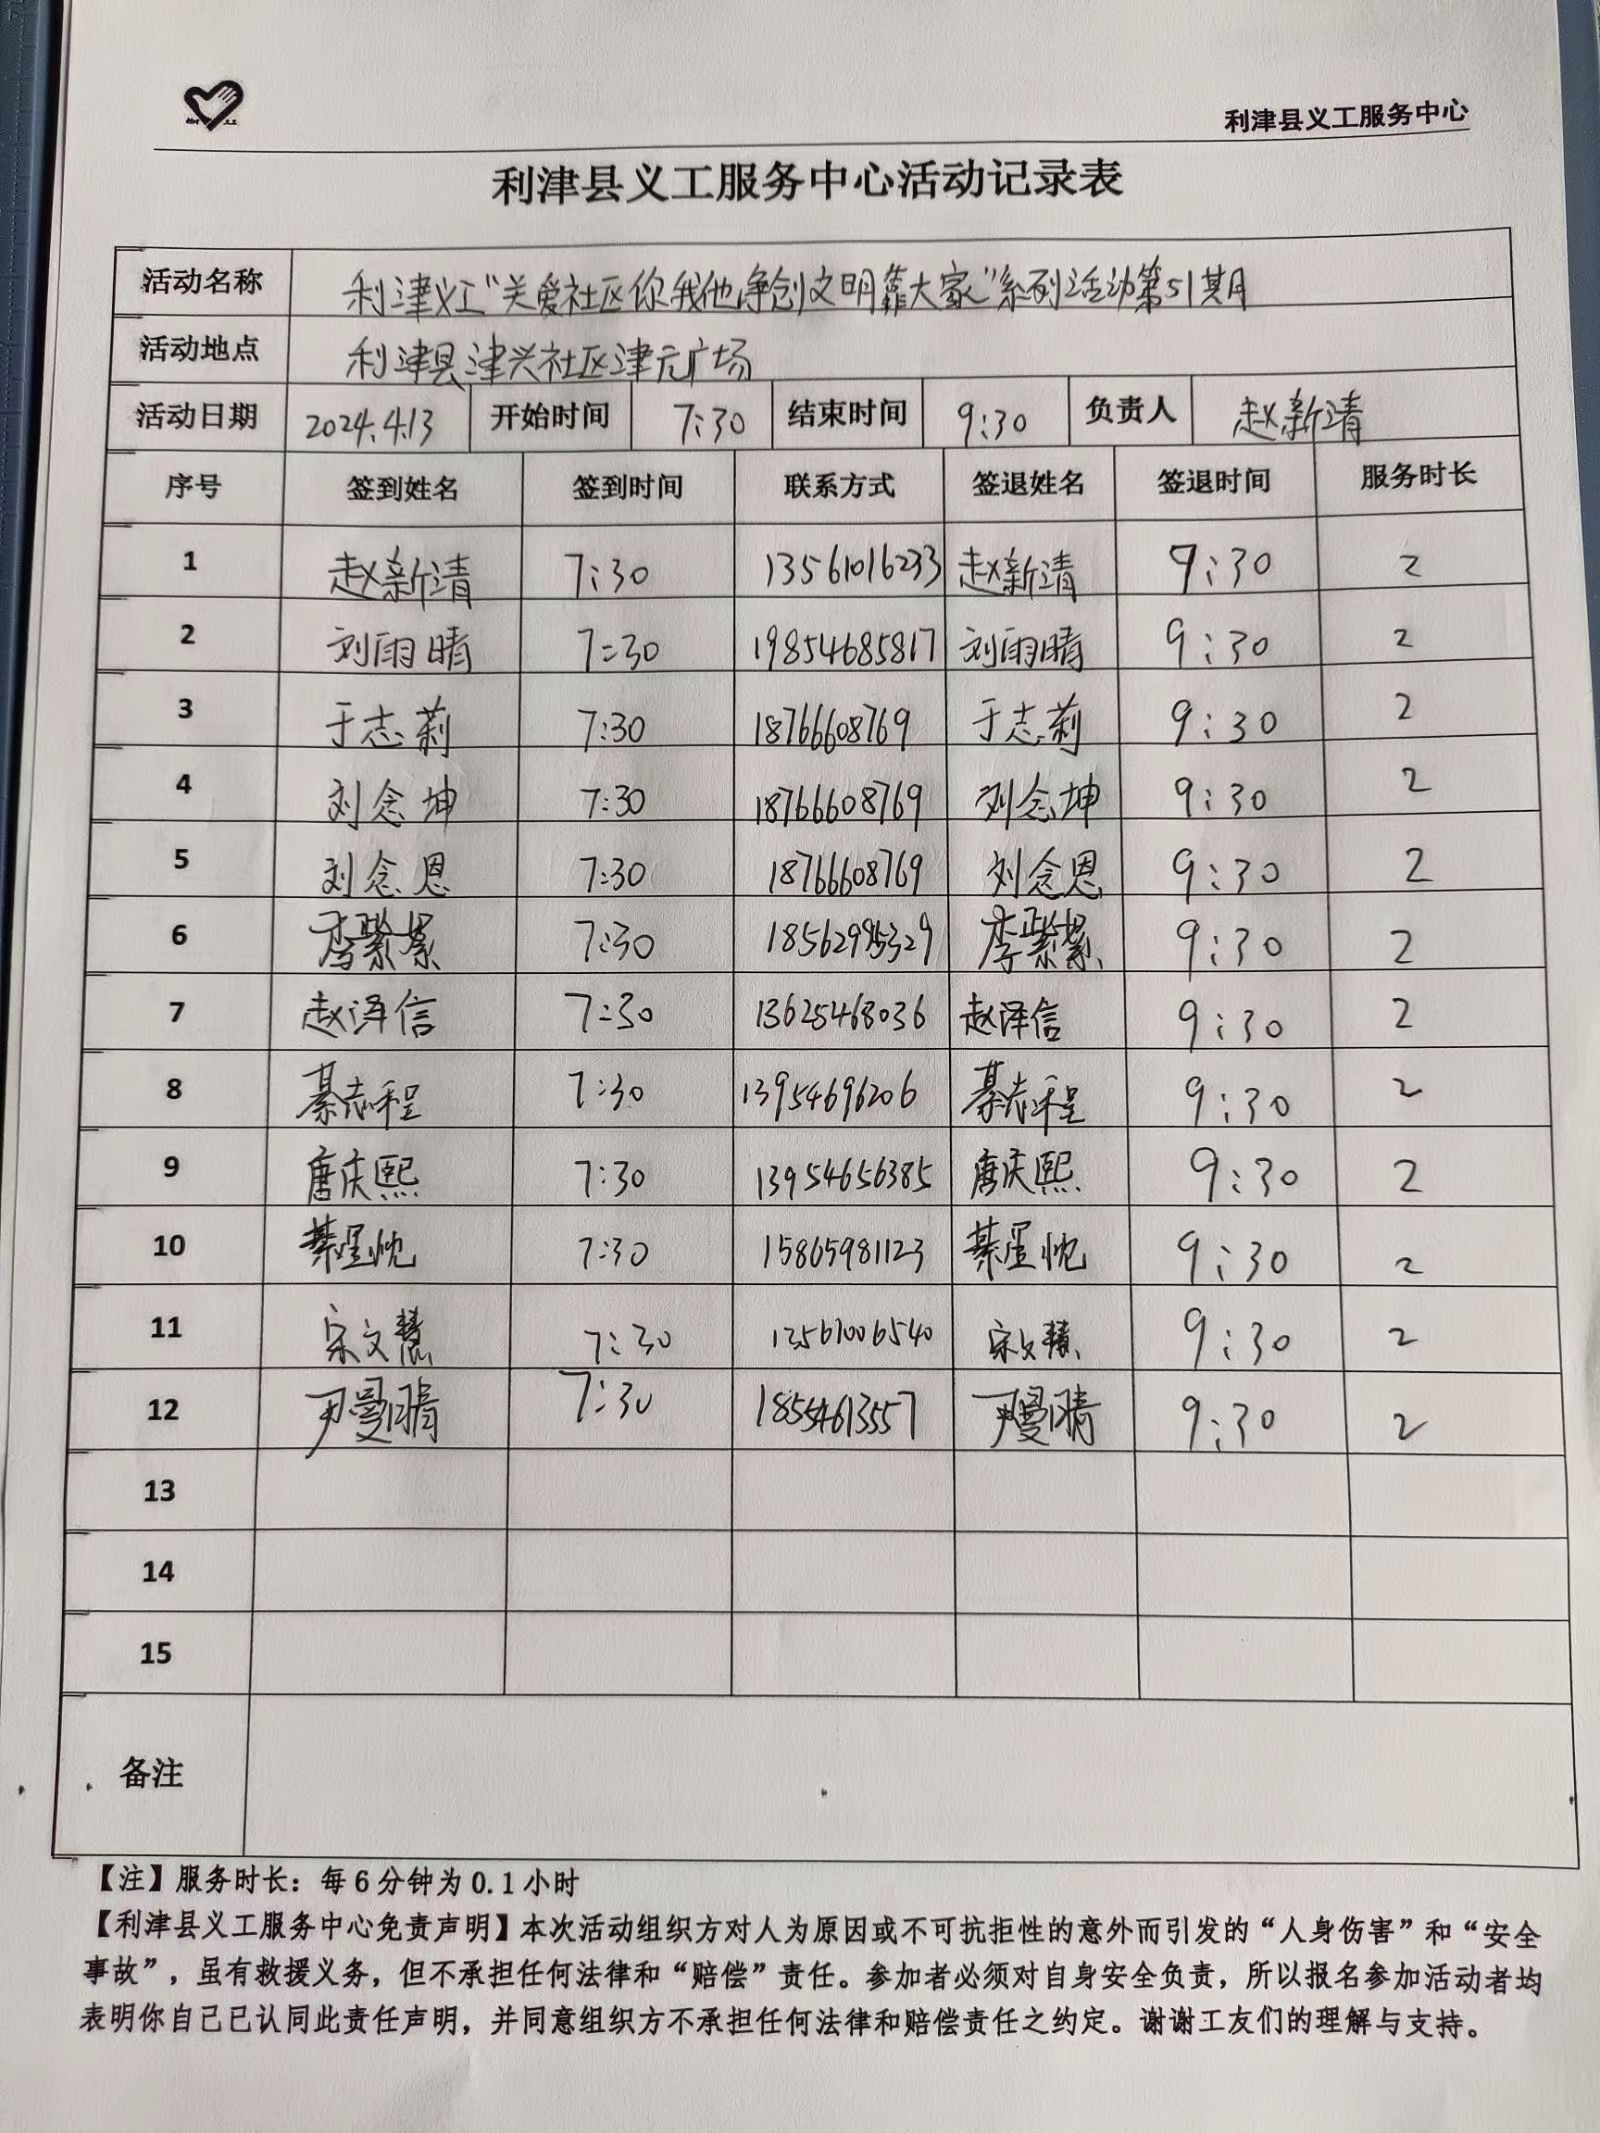 利津县义工服务中心
利津县义工服务中心活动记录表
活动名称 利津义工“关爱社区你我他净创文明靠大家”系列活动第51期
活动地点 利津县津兴社区津元广场
活动日期 2024.4.13 开始时间 7:30 结束时间 9:30 负责人 赵新清
序号 签到姓名 签到时间 联系方式 签退姓名 签退时间 服务时长
1 赵新清 7:30 13561016233 赵新清 9:30 2
2 刘雨晴 7:30 19854685817 刘雨晴 9:30 2
3 于志莉 7:30 18766608769 于志莉 9:30 2
4 刘念坤 7:30 18766608769 刘念坤 9:30 2
5 刘念恩 7:30 18766608769 刘念恩 9:30 2
6 7:30 9:30 2
7 赵泽信 7:30 13625468036 赵泽信 9:30 2
8 綦志程 7:30 13954696206 綦志程 9:30 2
9 唐庆熙 7:30 13954656385 唐庆熙 9:30 2
10 7:30 15865981123 9:30 2
11 宋文慧 7:30 13561006540 宋文慧 9:30 2
12 尹曼晴 7:30 18554613557 尹曼晴 9:30 2
13
14
15
备注
【注】服务时长：每6分钟为0.1小时
【利津县义工服务中心免责声明】本次活动组织方对人为原因或不可抗拒性的意外而引发的“人身伤害”和“安全
事故”，虽有救援义务，但不承担任何法律和“赔偿”责任。参加者必须对自身安全负责，所以报名参加活动者均
表明你自己已认同此责任声明，并同意组织方不承担任何法律和赔偿责任之约定。谢谢工友们的理解与支持。